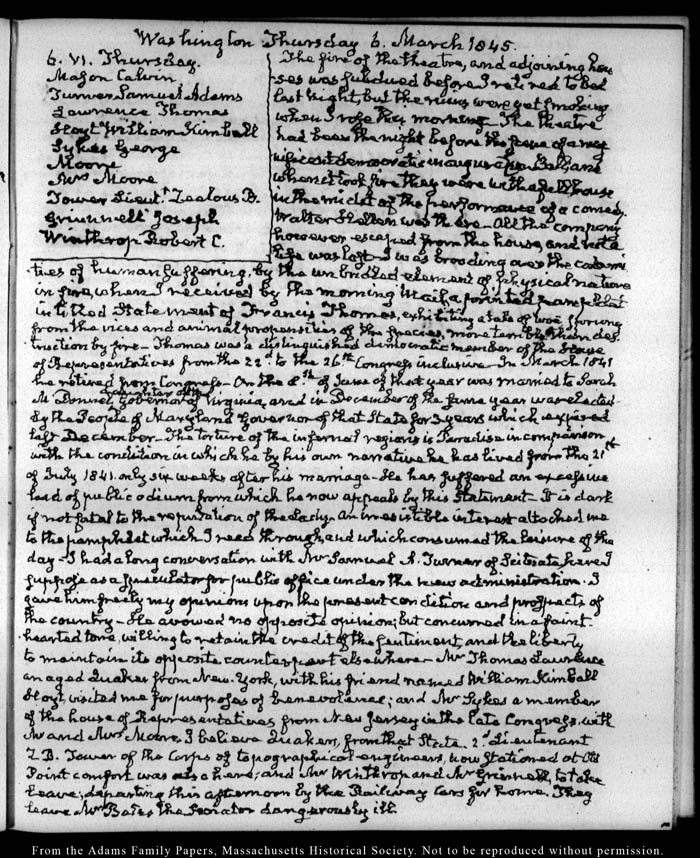 Washington Thursday 6. March 1845.
6. VI. Thursday.
Mason Calvin
Turner Samuel Adams
Lawrence Thomas
Hoyt William Kimball
Sykes George
Moore
Mrs Moore
Tower Lieut.t Zealous B.
Grinnell Joseph
Winthrop Robert C.
The fire of the theatre, and adjoining hou
ses was subdued before I retired to bed
last night, but the ruins were yet smoking
when I rose this morning. The theatre
had been the night before the scene of a mag
nificent democratic inauguration Ball, and
when it took fire they were with a full house
in the midst of the performance of a comedy.
Walter was there - All the company
however escaped from the house, and not a
life was lost - I was brooding over the calami
ties of human suffering, by the unbridled element of physical nature
in fire, when I received by the morning Mail, a printed pamphlet
intitled Statement of Francis Thomas, exhibiting a tale of woe springing
from the vices and animal propensities of the species, more terrible than des
truction by fire - Thomas was a distinguished democratic member of the House
of Representatives from the 22d to the 26th Congress inclusive - In March 1841
he retired from Congress - On the 8.th of June of that year was married to Sarah
McDowell, daughter of the Governor of Virginia, and in December of the same year was elected
by the People of Maryland Governor of that State for 3 years which expired
last December - The torture of the infernal regions is Paradise in comparison
with the condition in which he by his own narrative he has lived from the 21st
of July 1841. only six weeks after his marriage - He has suffered an excessive
load of public odium from which he now appeals by this Statement - It is dark
if not fatal to the reputation of the Lady - An irresistible interest attached me
to the pamphlet which I read through, and which consumed the leisure of the
day - I had a long conversation with Mr Samuel A. Turner of Scituate here I
suppose as a speculator for public office under the new administration. I
gave him freely my opinions upon the present condition and prospects of
the country - He avowed no opposite opinion; but concurred in a faint
hearted tone, willing to retain the credit of the sentiment, and the liberty
to maintain its opposite counterpart elsewhere - Mr Thomas Lawrence
an aged Quaker from New-York, with his friend named William Kimball
Hoyt, visited me for purposes of benevolence; and Mr Sykes a member
of the house of Representatives from New Jersey in the late Congress, with
Mr and Mrs Moore, I believe Quakers, from that State. 2.d Lieutenant
Z. B. Tower of the Corps of topographical engineers, now stationed at Old
Point comfort was also here; and Mr Winthrop and Mr Grinnell, to take
leave; departing this afternoon by the Railway Cars for home. They
leave Mr Bates the Senator dangerously ill.
From the Adams Family Papers, Massachusetts Historical Society. Not to be reproduced without permission.